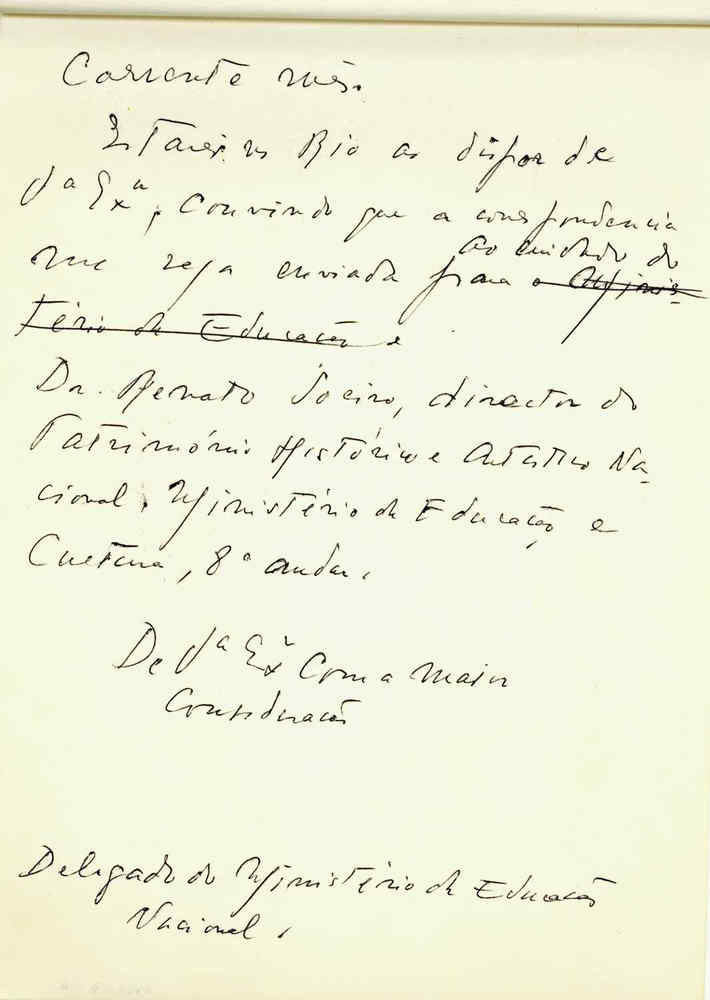 Corrente mês.
Estarei no Rio ao dispor de
Vª Exª, convindo que a correspondencia
ao cuidado do
me seja enviada para o Minis-
tério da Educação e
Dr. Renato Soeiro, director do
Património Histórico e Artistico Na-
cional, Ministério da Educação e
Cultura, 8º andar.
De Vª Exª com a maior
Consideração
Delegado do Ministério da Educação
Nacional.